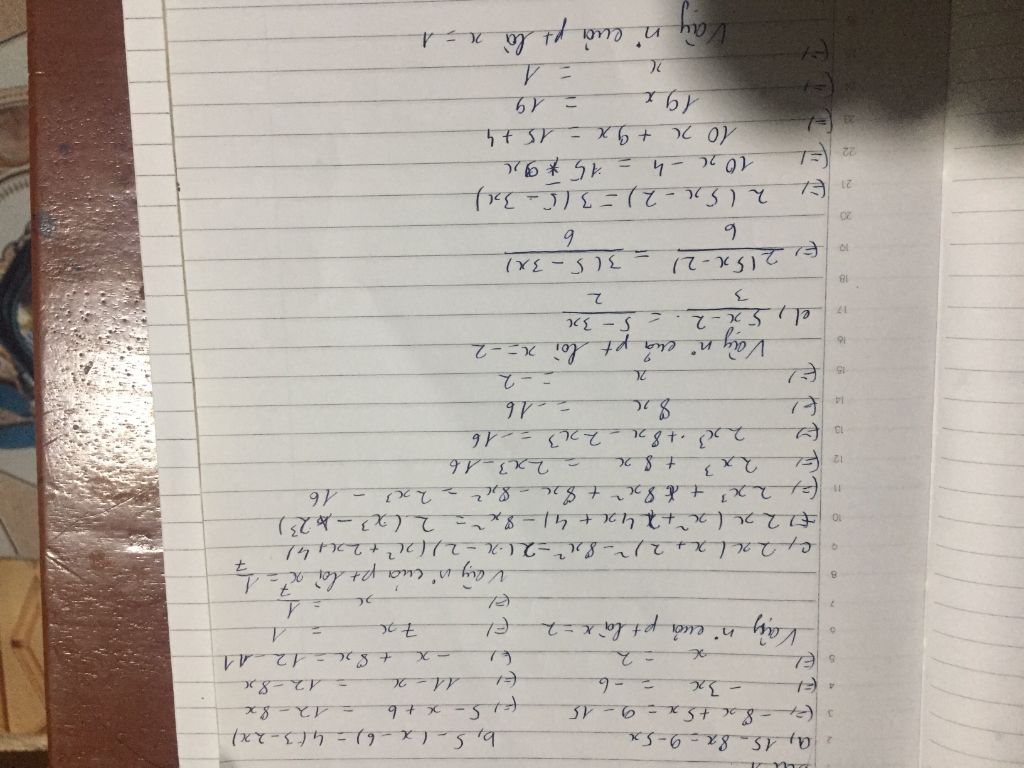 a, 15 - 8x = 9 - 5x
(=) - 8x + 5x = 9 - 15
(=) - 3x = -6
(=) x = 2
Vậy n° của pt là x = 2
b, 5 - (x - 6) = 4(3 - 2x)
(=) 5 - x + 6 = 12 - 8x
(=) 11 - x = 12 - 8x
(=) - x + 8x = 12 - 11
(=) 7x = 1
(=) x = 1/7
Vậy n° của pt là x = 1/7
c, 2x(x + 2)² - 8x² = 2(x - 2)(x² + 2x + 4)
(=) 2x(x² + 4x + 4) - 8x² = 2(x³ - 2³)
(=) 2x³ + 8x² + 8x - 8x² = 2x³ - 16
(=) 2x³ + 8x = 2x³ - 16
(=) 2x³ + 8x - 2x³ = -16
(=) 8x = -16
(=) x = -2
Vậy n° của pt là x = -2
d, (5x - 2)/3 = (5 - 3x)/2
(=) 2(5x - 2)/6 = 3(5 - 3x)/6
(=) 2(5x - 2) = 3(5 - 3x)
(=) 10x - 4 = 15 - 9x
(=) 10x + 9x = 15 + 4
(=) 19x = 19
(=) x = 1
Vậy n° của pt là x = 1